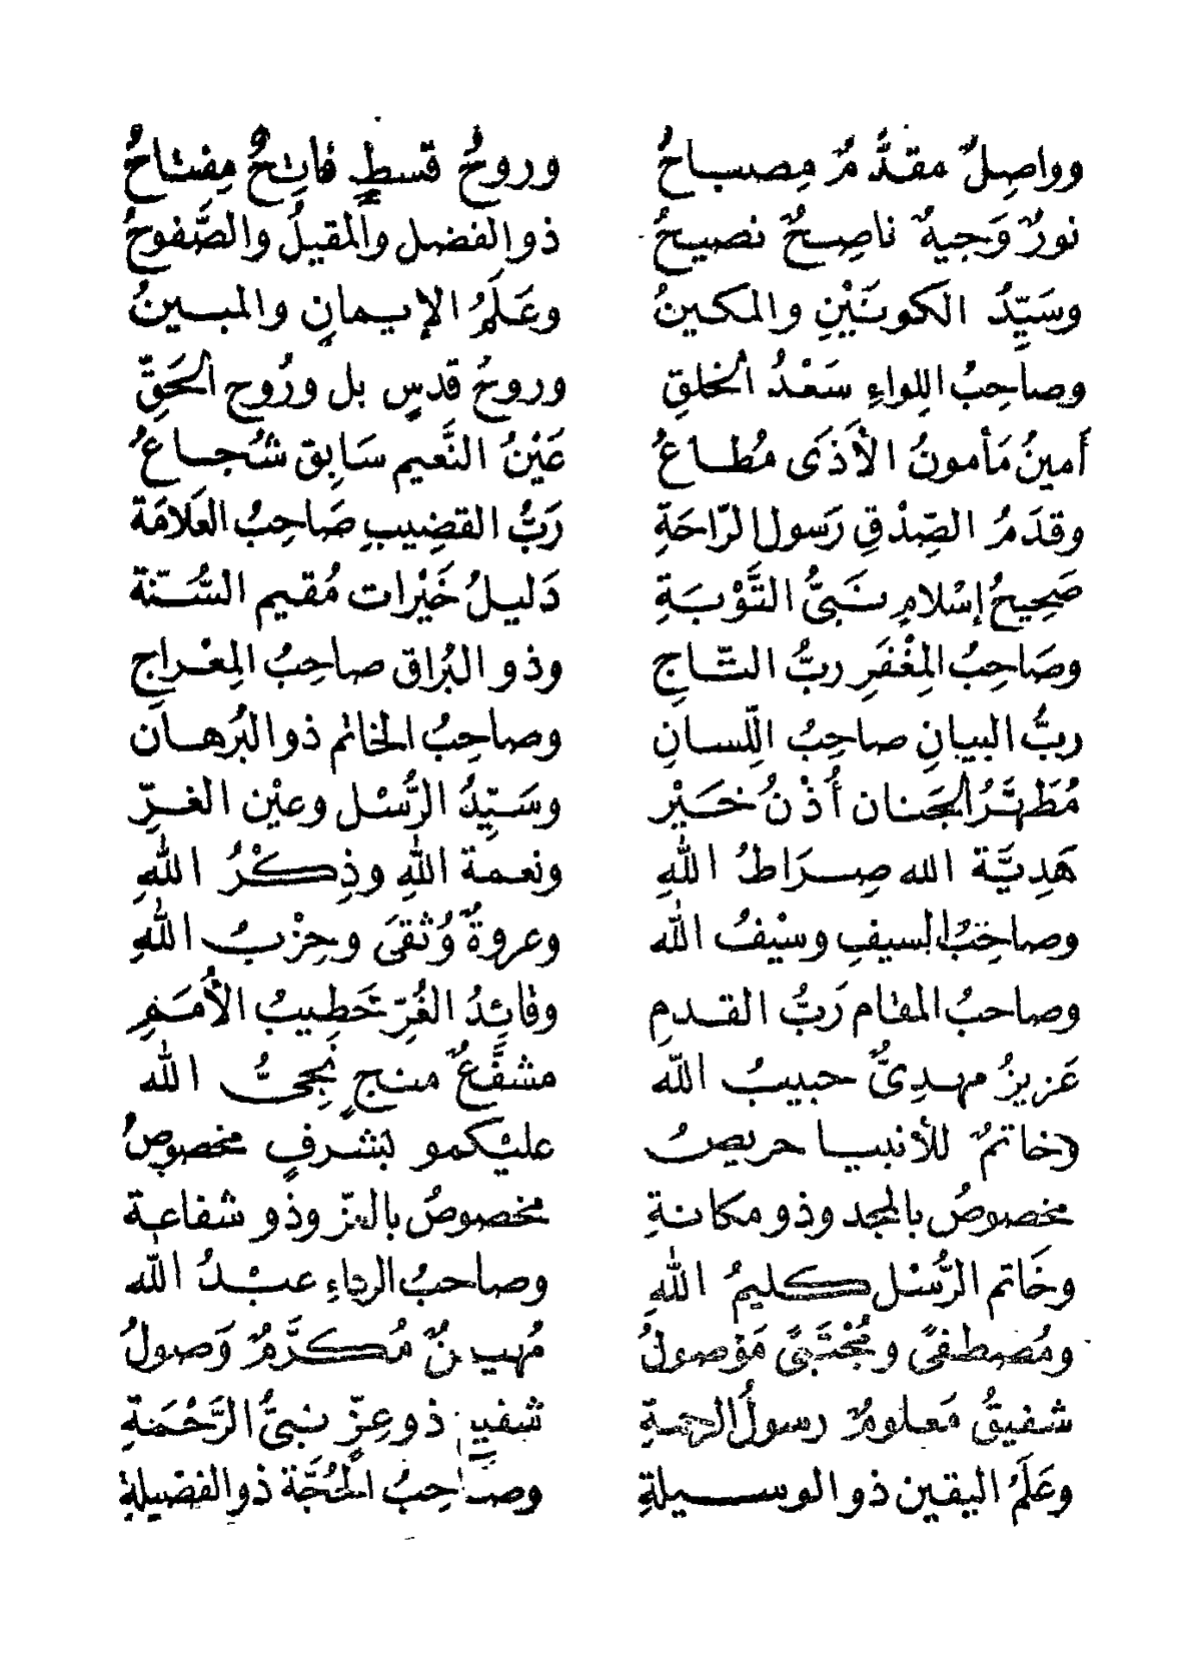 وواصِلٌ مقدَّمٌ مِصباحُ وروحُ قسطٍ فاتِحٌ مِفتاحُ
نورٌ وَجِيهٌ ناصِحٌ نصيحُ ذو الفضل والمقيلُ والصَّفوحُ
وسَيِّدُ الكونَيْنِ والمكينُ وعَلَمُ الإيمانِ والمبينُ
وصاحِبُ اللِواءِ سَعْدُ الخلقِ وروحُ قدسٍ بل ورُوح الحَقِّ
أمينُ مَأمونُ الأذَى مُطاعُ عَيْنُ النَّعيم سَابِق شُجاعُ
وقدَمُ الصِّدْقِ رَسول الرّاحَةِ رَبُّ القضِيبِ صَاحِبُ العَلامَة
صَحِيحُ إسْلامٍ نَبىُّ التَّوْبَةِ دَليلُ خَيْرات مُقيم السُّنّة
وصَاحِبُ المِغْفَرِ ربُّ التّاجِ وذو البُراق صاحِبُ المِعْراجِ
ربُّ البيانِ صاحِبُ اللِّسانِ وصاحِبُ الخاتم ذو البُرهان
مُطَهَّرُ الجَنان أُذْنُ خَيْر وسَيِّدُ الرُّسْل وعيْن الغرِّ
هَدِيَّة الله صِرَاطُ اللهِ ونعمة اللهِ وذِكْرُ اللهِ
وصاحِبُ السيفِ وسيْفُ الله وعروةٌ وُثقىَ وحِزْبُ اللهِ
وصاحبُ المقام رَبُّ القدمِ وقائِدُ الغُرِّ خَطِيبُ الأُمَمِ
عَزيزُ مهدِىٌّ حبيبُ الله مشفَّعٌ منجٍ نَجِىُّ الله
وخاتمٌ للأنبيا حريصُ عليْكمو بشرفٍ مخصوصُ
مخصوصُ بالمجد وذو مكانةِ مخصوصُ بالعزّ وذو شفاعة
وخَاتم الرُّسْل كليمُ اللهِ وصاحبُ الرداءِ عبْدُ الله
ومُصطفىً ومُجْتَبىً مَوْصولُ مُهيمنٌ مُكرَّمٌ وَصولُ
شفيقُ مَعلومٌ رسولُ الرحمةِ ذو عِزٍّ نبىُّ الرَّحْمَةِ
وعَلَمُ اليقين ذو الوسيلةِ وصاحِبُ الحُجَّة ذو الفضيلةِ